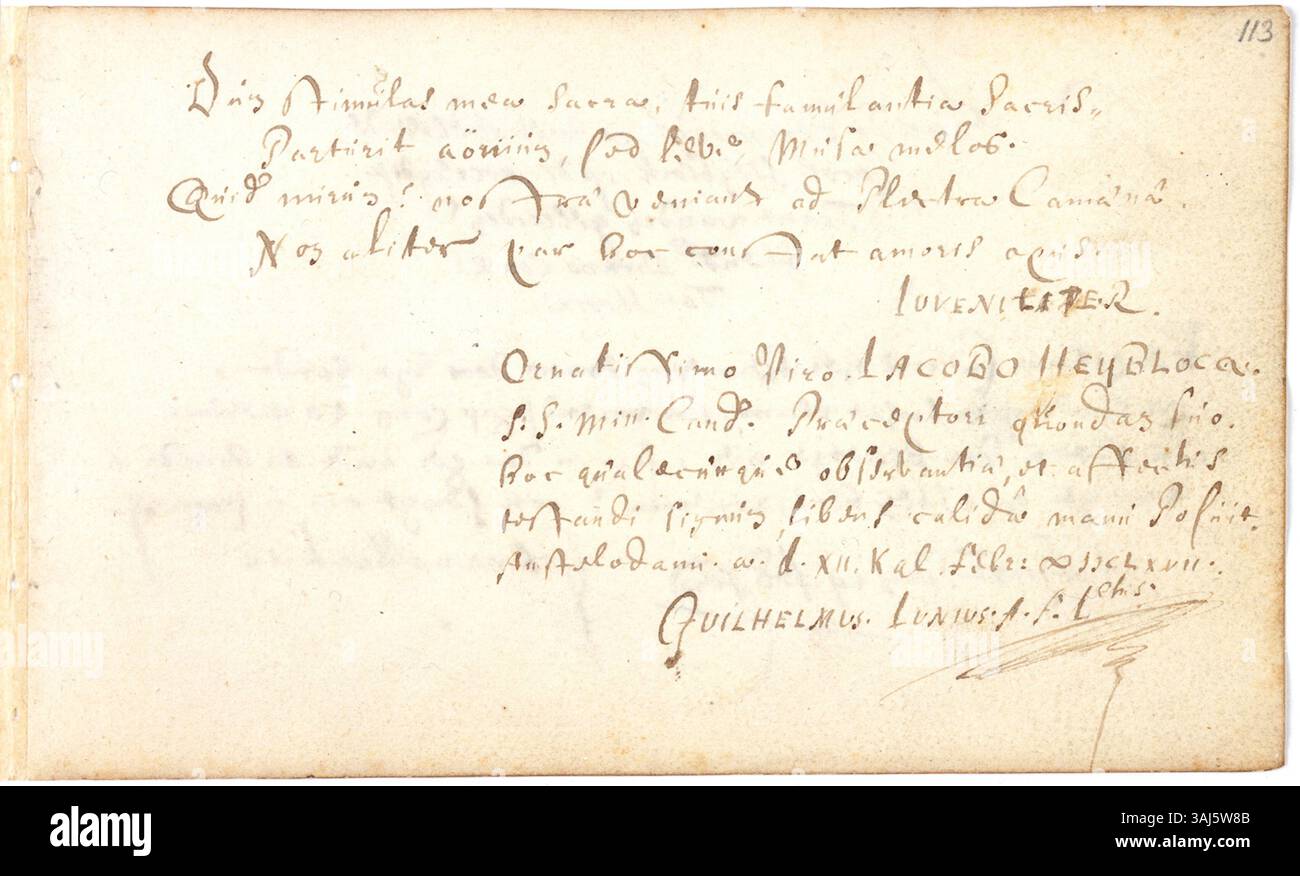 113
Dum stimulas mea sacra, tuis famulantia sacris,
Parturit aönium, sed leve, Musa melos.
Quid mirum? nostrâ veniant ad Plectra Camænâ.
Non aliter par hoc constat amoris opus.
IUVENILITER.
Ornatissimo Viro. IACOBO HEYBLOCQ.
S. S. Min. Cand. Præceptori quondam suo.
hoc qualecunque observantiæ, et affectus
testandi signum, libens calidâ manu Posuit.
Amstelodami. a. d. XII. Kal. Febr:
GUILHELMUS. IUNIUS. A. F.
alamy
Image ID: 3AJ5W8B
www.alamy.com